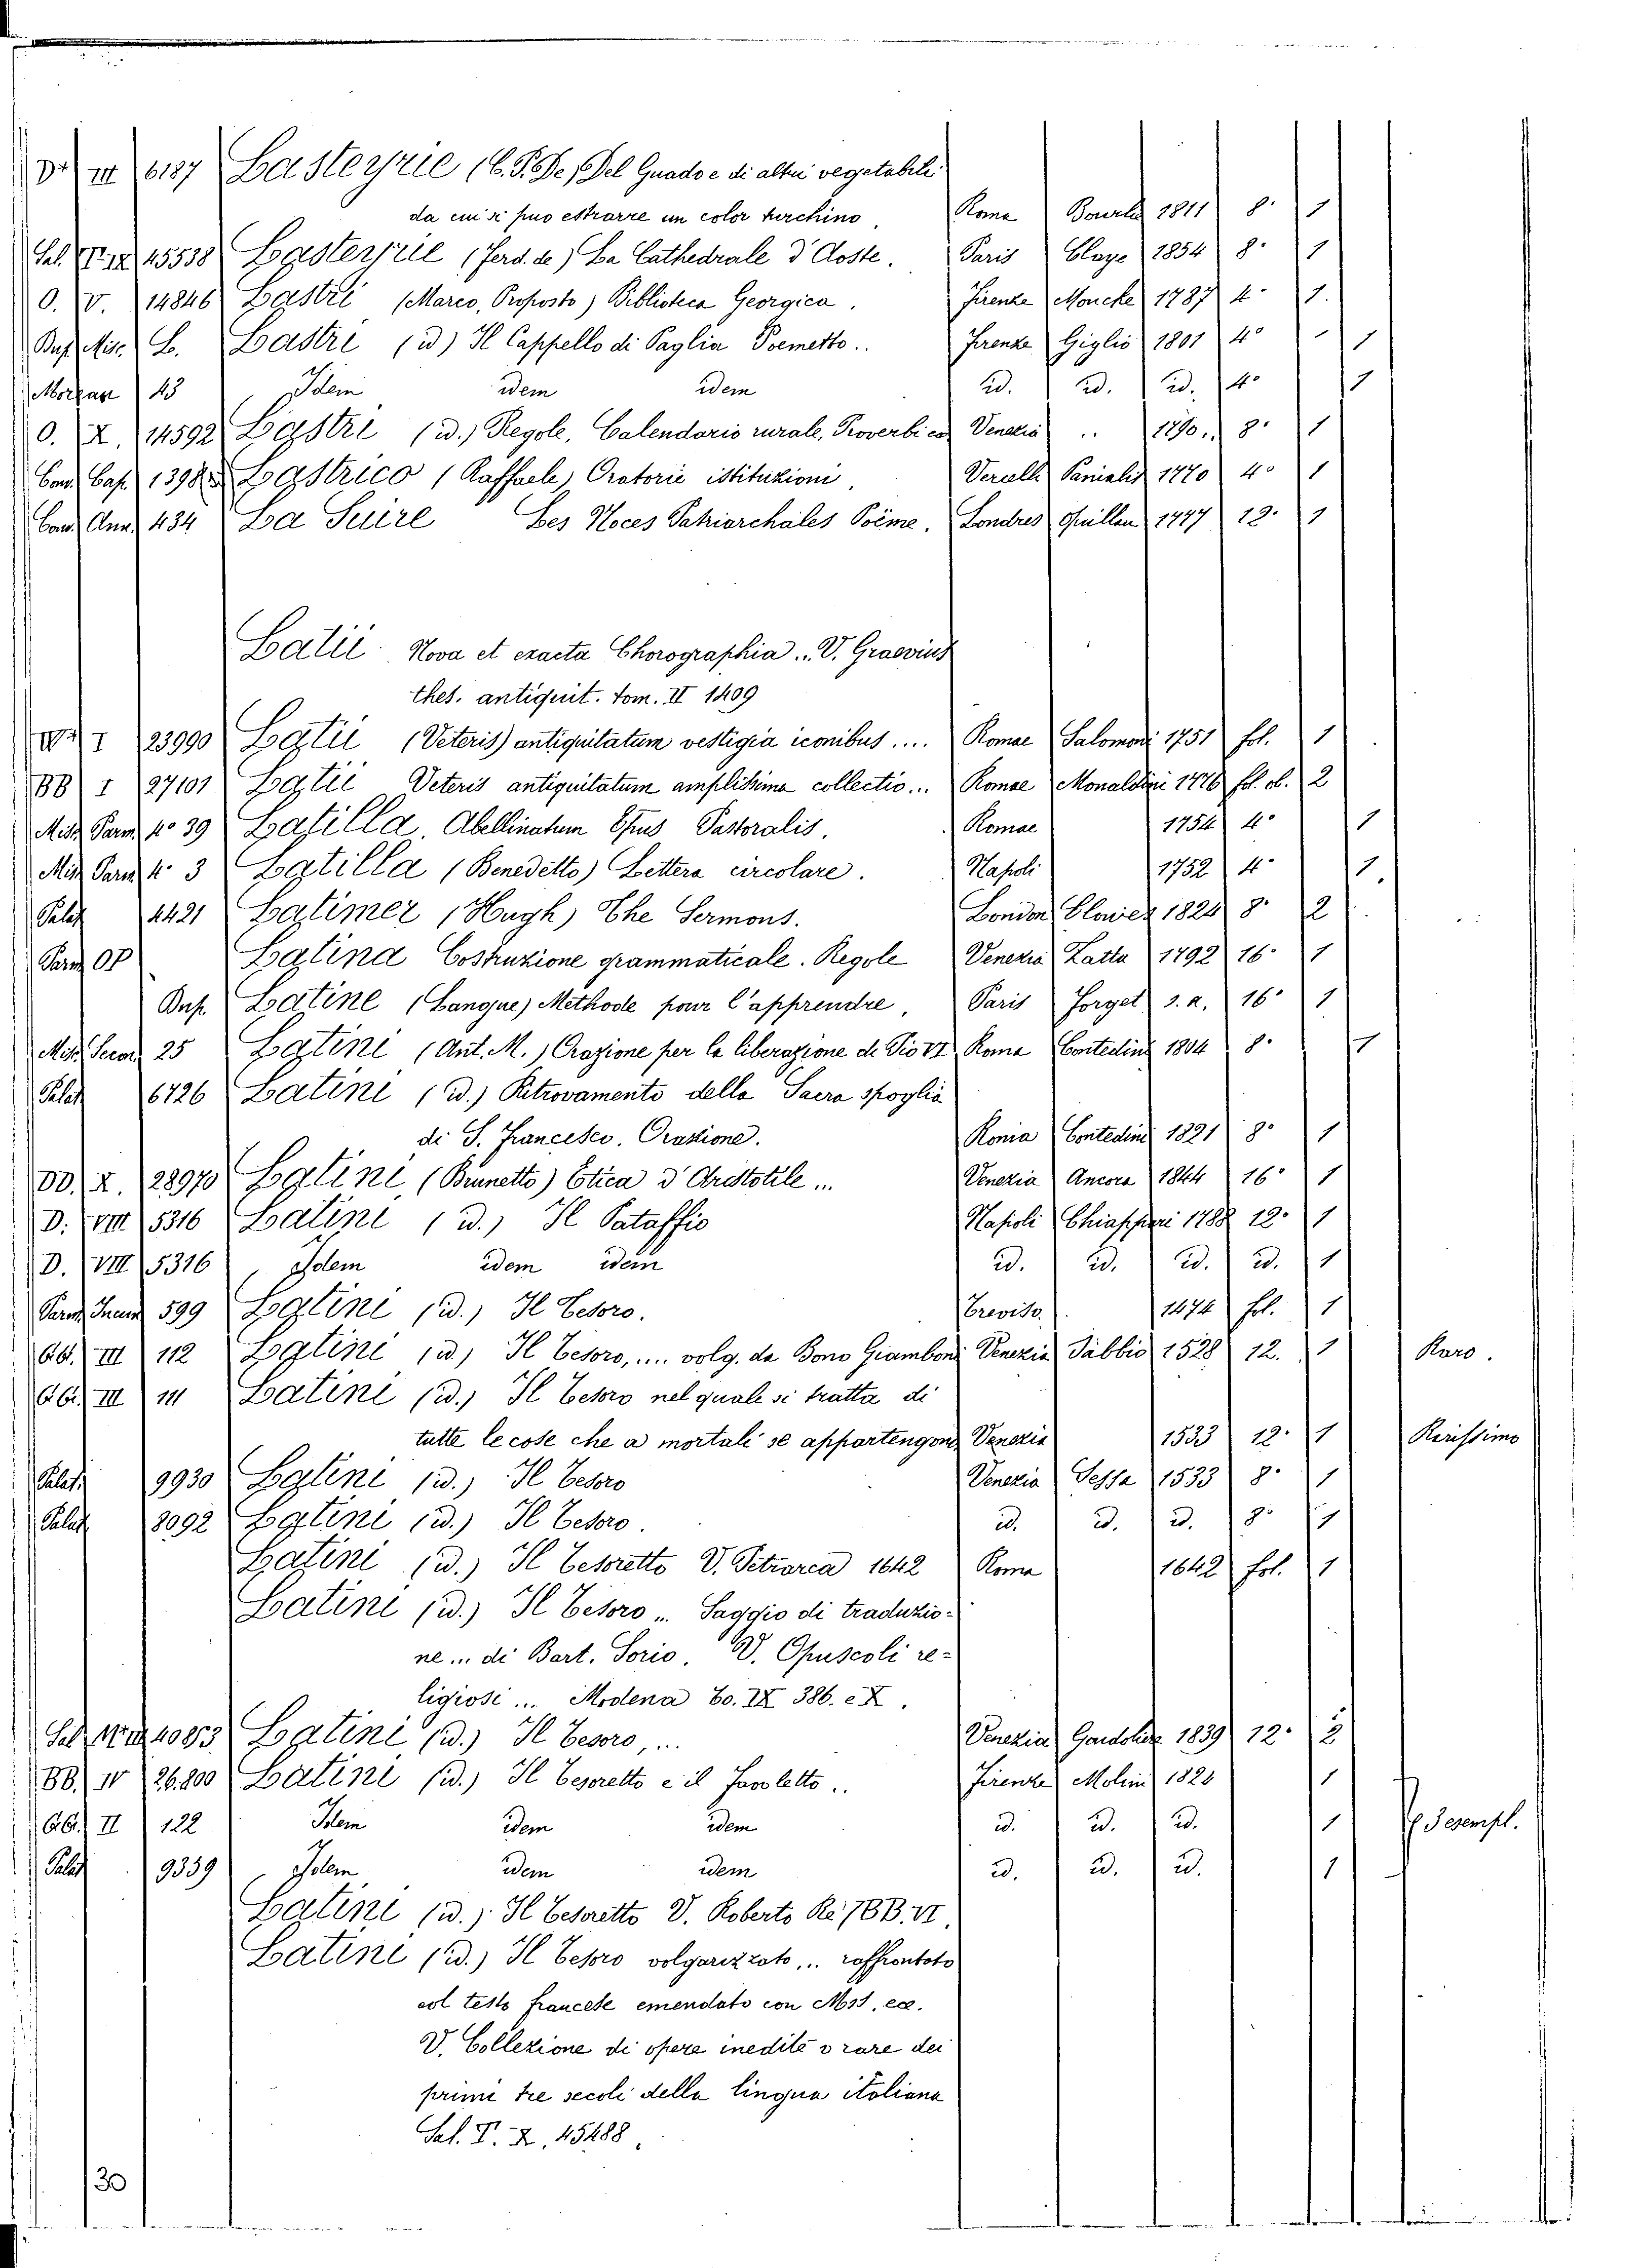 D.* III 6187 Lasteyrie (C. P. De) Del Guado e di altri vegetabili
da cui si può estrarre un color turchino. Roma Bourlié 1811 8° 1
Sal. V. IX 45538 Lasteyrie (Ferd. de) La Cathedrale d'Aoste. Paris Claye 1854 8° 1
O. V. 14846 Lastri (Marco, Proposto) Biblioteca Georgica. Firenze Moucke 1787 4° 1.
Buf. Misc. L. Lastri (id) Il Cappello di Paglia Poemetto.. Firenze Giglio 1801 4° 1
43 Idem idem idem id. id. id. 4° 1
O. X. 14592 Lastri (id.) Regole, Calendario rurale, Proverbi ec. Venezia .. 1790.. 8° 1
Cand. Cap. 1398 Lastrico (Raffaele) Oratorie istituzioni. Vercelli Panialis 1770 4° 1
Cand. Ann. 434 La Suire Les Noces Patriarchales Poëme. Londres 1777 12° 1
Latii Nova et exacta Chorographia .. V. Graevius
thes. antiquit. tom. II 1409
I 23990 Latii (Veteris) antiquitatum vestigia iconibus .... Romae Salomoni 1751 fol. 1
BB I 27101 Latii Veteris antiquitatum amplissima collectio... Romae Monaldini 1776 fol. ob. 2
Misc. Parm. 4° 39 Latilla. Abellinatum Epus Pastoralis. Romae 1754 4° 1
Misc. Parm. 4° 3 Latilla (Benedetto) Lettera circolare. Napoli 1752 4° 1.
Palat. 4421 Latimer (Hugh) The Sermons. London Clowes 1824 8° 2
Parm. OP Latina Costruzione grammaticale. Regole Venezia Zatta 1792 16° 1
Buf. Latine (Langue) Methode pour l'apprendre, Paris Forget s.a. 16° 1
Misc. Secon. 25 Latini (Ant. M.) Orazione per la liberazione di Pio VI Roma Contedini 1804 8° 1
Palat. 6726 Latini (id.) Ritrovamento della Sacra spoglia
di S. Francesco. Orazione. Roma Contedini 1821 8° 1
DD. X. 28970 Latini (Brunetto) Etica d'Aristotile ... Venezia Ancora 1844 16° 1
D. VIII 5316 Latini (id.) Il Pataffio Napoli Chiappari 1788 12° 1
D. VIII 5316 Idem idem idem id. id. id. id. 1
Parm. Incun. 599 Latini (id.) Il Tesoro. Treviso. 1474 fol. 1
GG. III 112 Latini (id) Il Tesoro, .... volg. da Bono Giamboni Venezia Sabbio 1528 12. 1 Raro.
GG. III 111 Latini (id.) Il Tesoro nel quale si tratta di
tutte le cose che a mortali se appartengono Venezia 1533 12° 1 Rarissimo
Palat. 9930 Latini (id.) Il Tesoro Venezia Sessa 1533 8° 1
Palat. 8092 Latini (id.) Il Tesoro. id. id. id. 8° 1
Latini (id.) Il Tesoretto V. Petrarca 1642 Roma 1642 fol. 1
Latini (id.) Il Tesoro ... Saggio di traduzio-
ne ... di Bart. Sorio. V. Opuscoli re-
ligiosi ... Modena To. IX 386. e X.
Sal. 40853 Latini (id.) Il Tesoro, ... Venezia Gondoliere 1839 12° 2
BB. IV 26.800 Latini (id.) Il Tesoretto e il Favoletto .. Firenze Molini 1824 1
GG. II 122 Idem idem idem id. id. id. 1 2 esempl.
Palat. 9339 Idem idem idem id. id. id. 1
Latini (id.) Il Tesoretto V. Roberto Re / BB. VI.
Latini (id.) Il Tesoro volgarizzato, .. raffrontato
col testo francese emendato con Mss. ec.
V. Collezione di opere inedite o rare dei
primi tre secoli della lingua italiana
Sal. V. X. 45488.
30